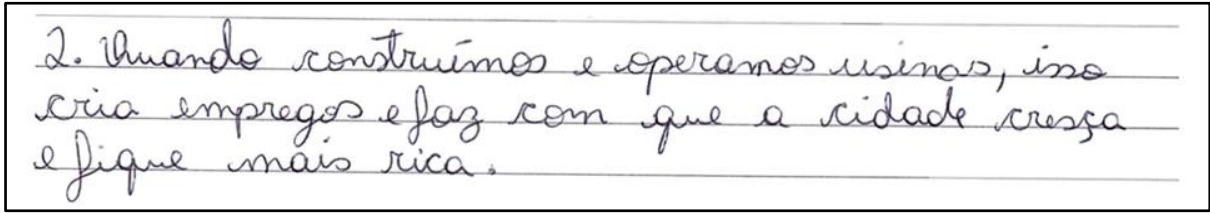 2. Quando construímos e operamos usinas, isso
cria empregos e faz com que a cidade cresça
e fique mais rica.